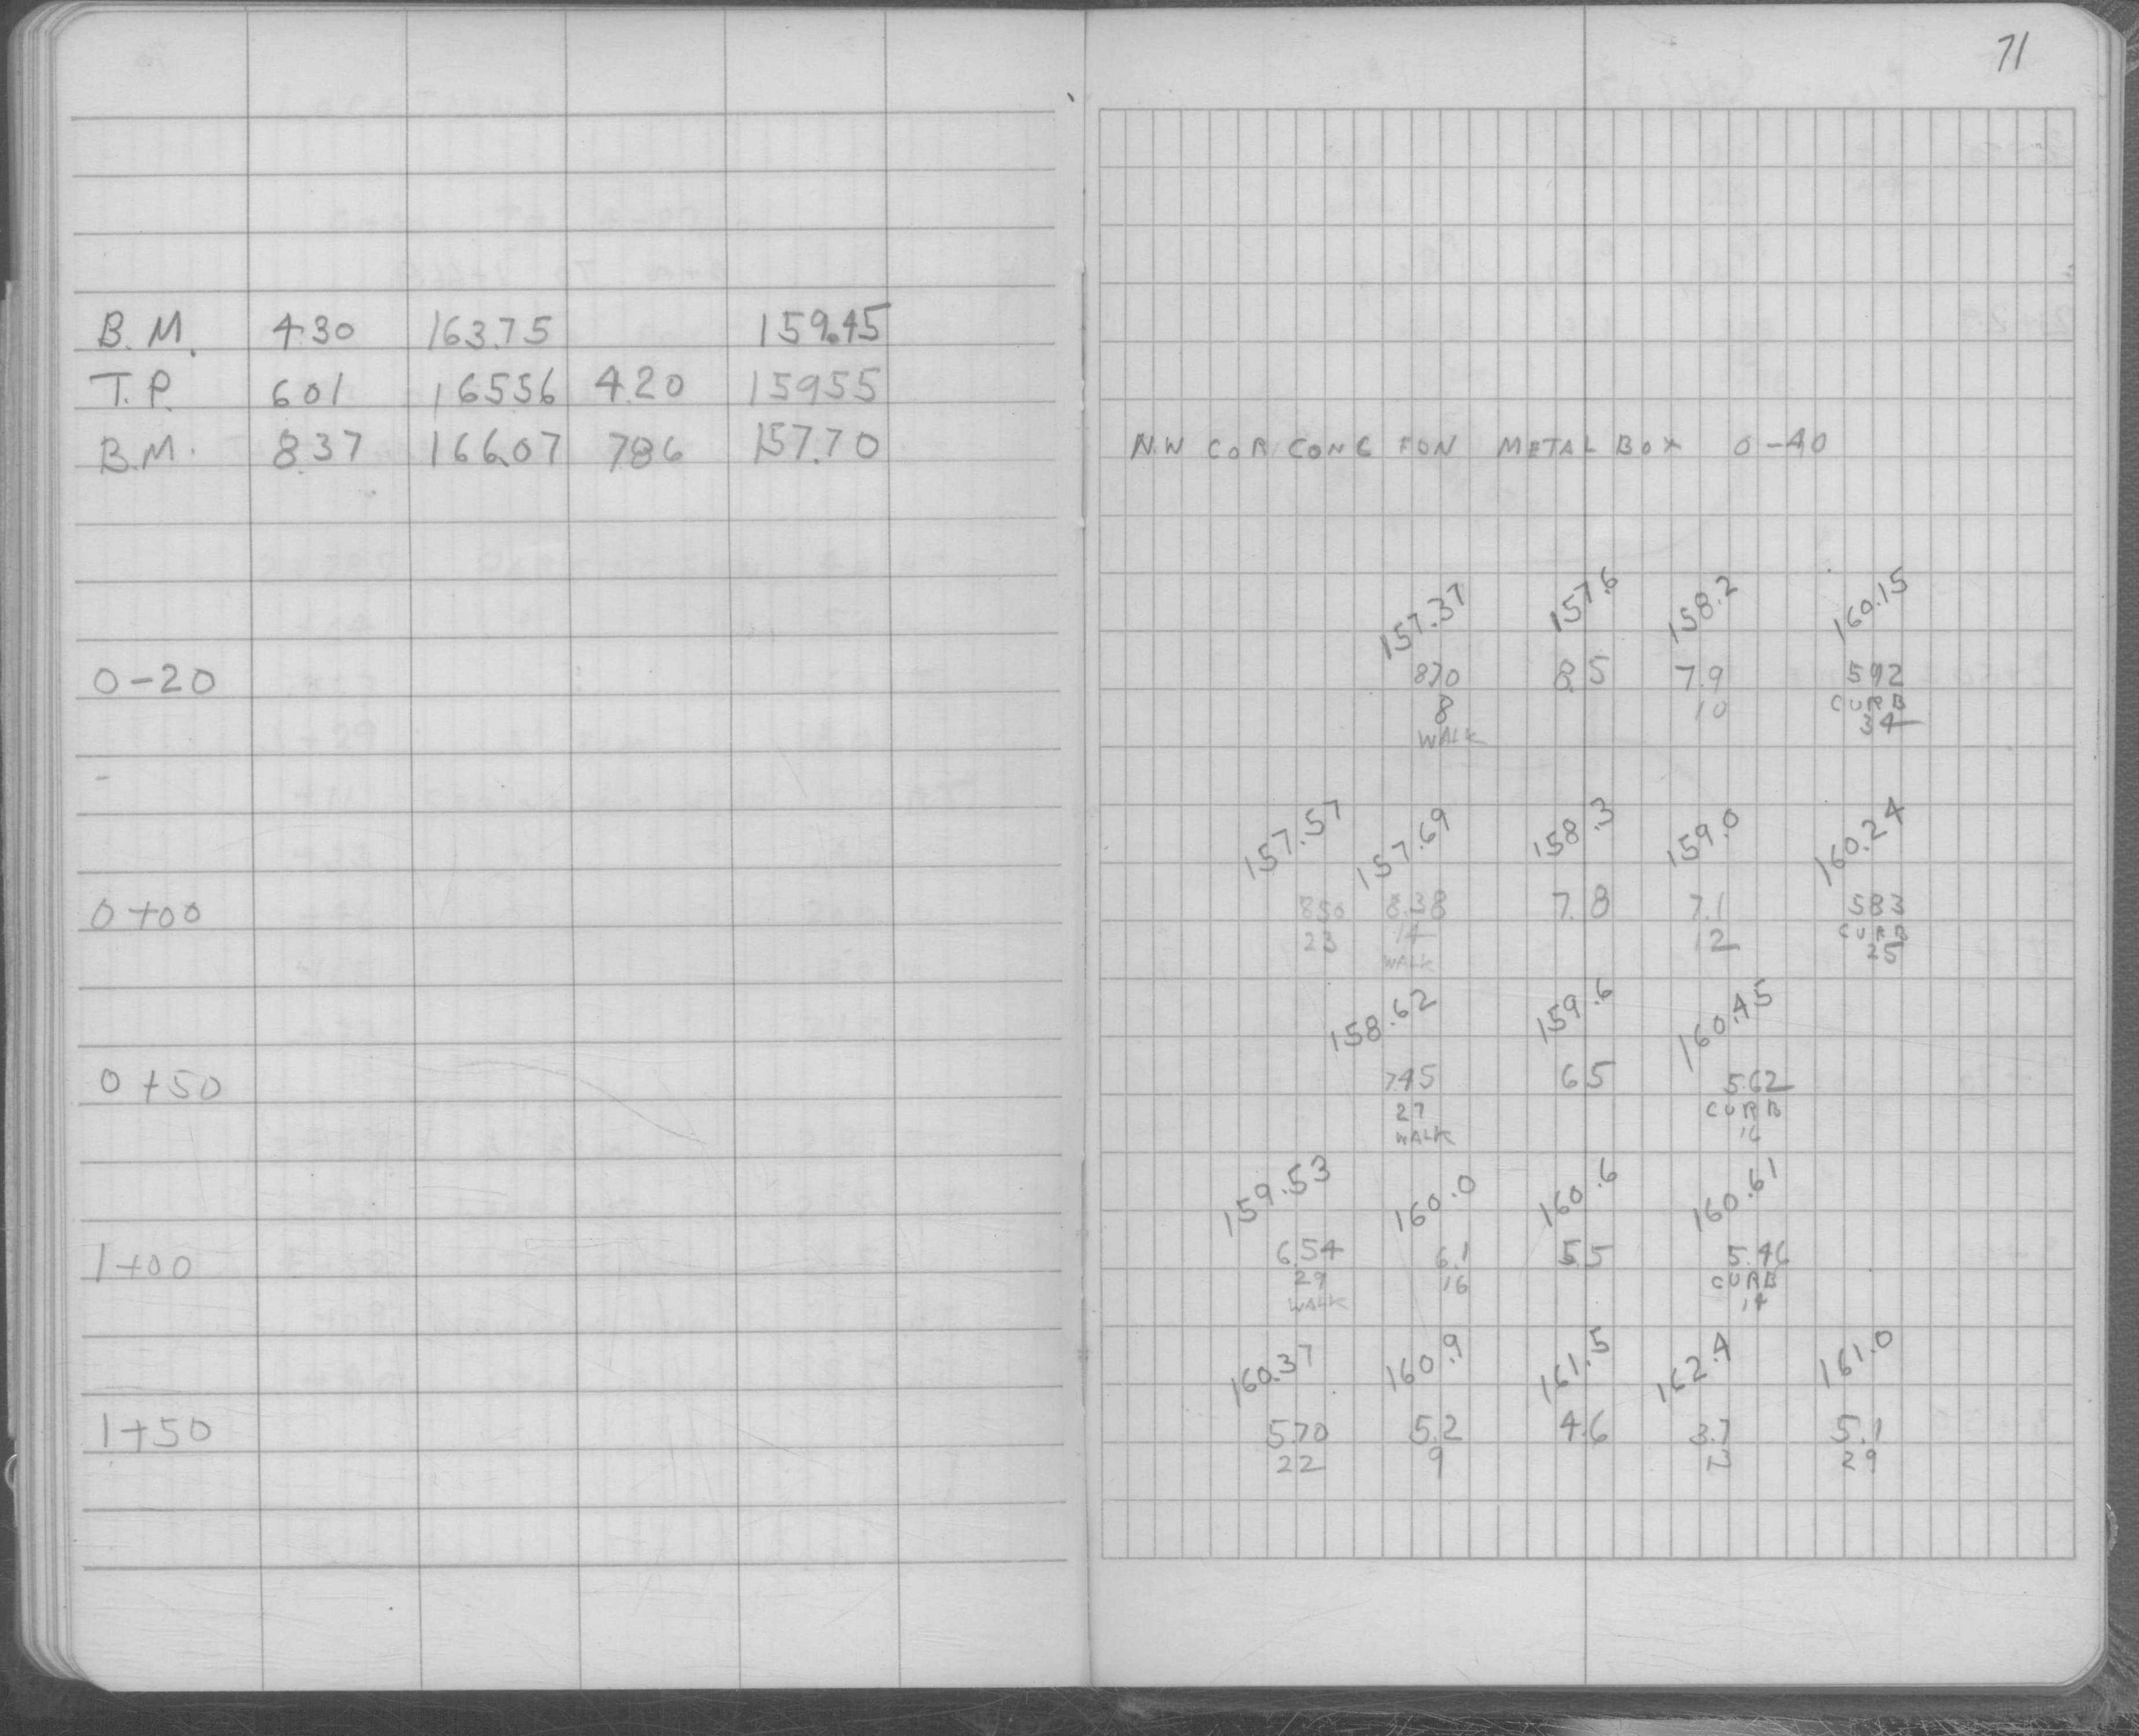 71
B.M. 4.30 163.75 159.45
T.P. 601 16556 4.20 15955
B.M. 8.37 166.07 786 157.70 N.W COR CONC FDN METAL BOX 0-40
157.37 157.6 158.2 160.15
0-20 870 8.5 7.9 592
8 10 CURB
WALK 34
157.57 157.69 158.3 159.0 160.24
0+00 850 8.38 7.8 7.1 583
23 14 12 CURB
WALK 25
158.62 159.6 160.45
0+50 745 65 5.62
27 CURB
WALK 16
159.53 160.0 160.6 160.61
1+00 6.54 6.1 5.5 5.46
29 16 CURB
WALK 14
160.37 160.9 161.5 162.4 161.0
1+50 5.70 5.2 4.6 3.7 5.1
22 9 13 29